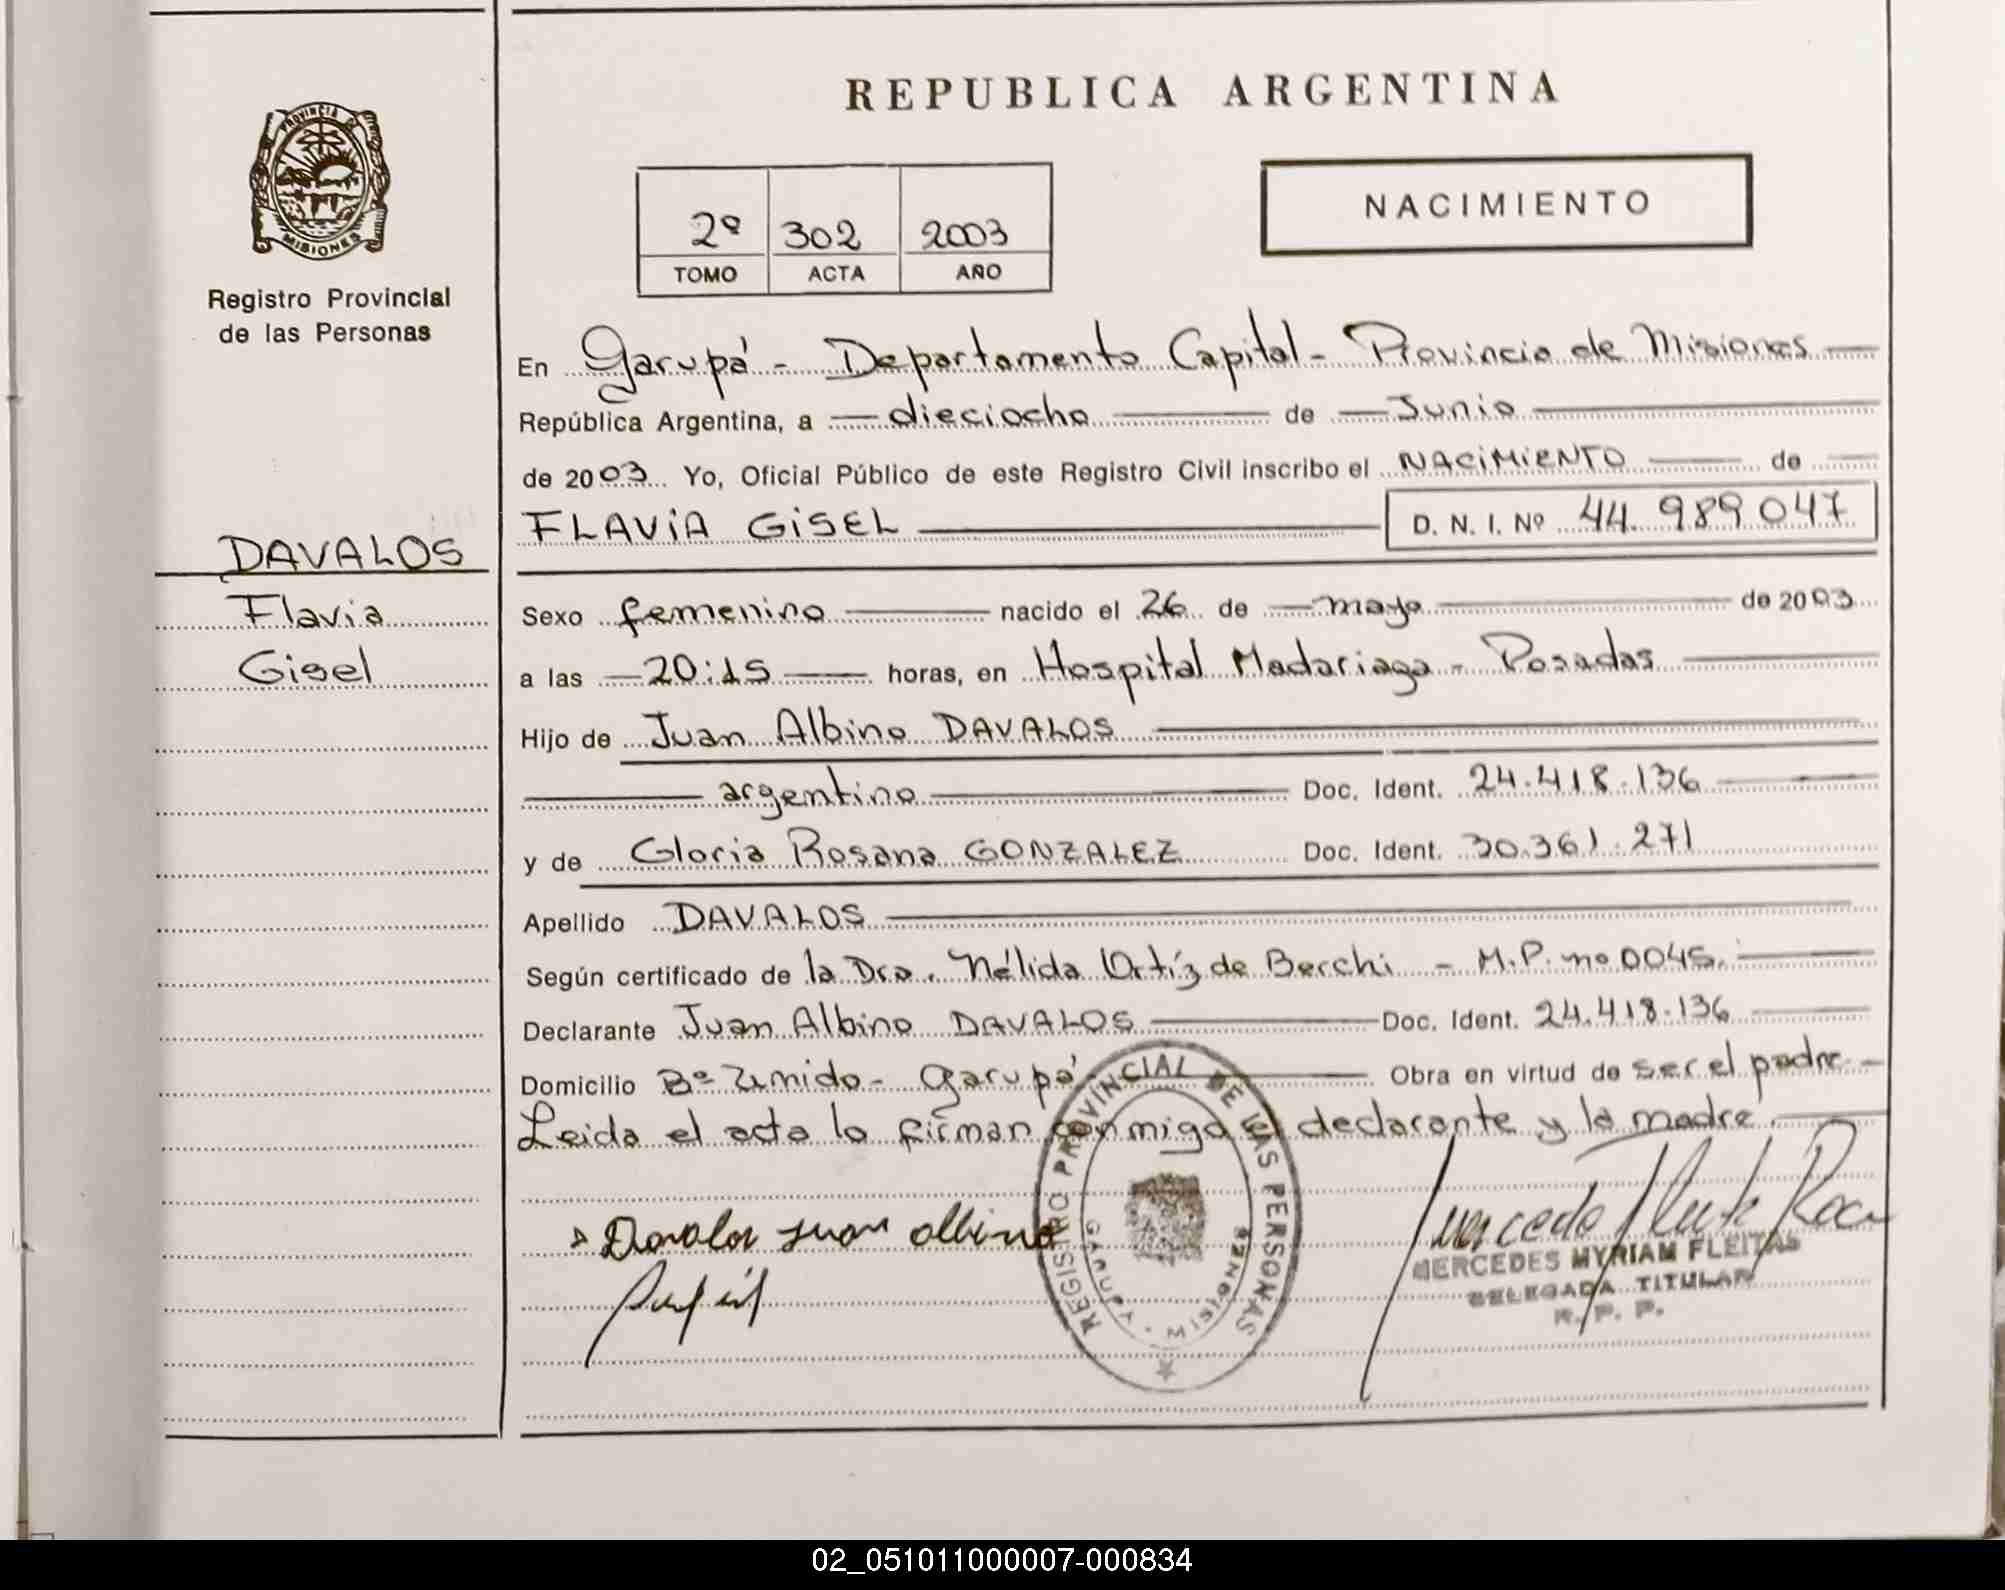 REPUBLICA ARGENTINA
PROVINCIA DE
MISIONES
Registro Provincial
de las Personas
2º 302 2003
TOMO ACTA AÑO
NACIMIENTO
En Garupá - Departamento Capital - Provincia de Misiones
República Argentina, a dieciocho de Junio
de 2003 Yo, Oficial Público de este Registro Civil inscribo el NACIMIENTO de
FLAVIA GISEL D. N. I. Nº 44.989047
DAVALOS
Flavia
Gisel
Sexo femenino nacido el 26 de mayo de 2003
a las 20:15 horas, en Hospital Madariaga - Posadas
Hijo de Juan Albino DAVALOS
argentino Doc. Ident. 24.418.136
y de Gloria Rosana GONZALEZ Doc. Ident. 30.361.271
Apellido DAVALOS
Según certificado de la Dra. Nélida Ortíz de Berchi - M.P. nº 0045.
Declarante Juan Albino DAVALOS Doc. Ident. 24.418.136
Domicilio Bº Unido - Garupá Obra en virtud de ser el padre -
Leida el acta la firman conmigo el declarante y la madre.
REGISTRO PROVINCIAL DE LAS PERSONAS
GARUPA - MISIONES
Davalos Juan Albino
MERCEDES MYRIAM FLEITAS
DELEGADA TITULAR
R. P. P.
02_051011000007-000834